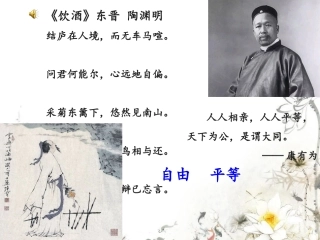 《饮酒》东晋 陶渊明
结庐在人境，而无车马喧。
问君何能尔，心远地自偏。
采菊东蓠下，悠然见南山。
鸟相与还。
辩已忘言。
人人相亲，人人平等，
天下为公，是谓大同。
——康有为
自由 平等